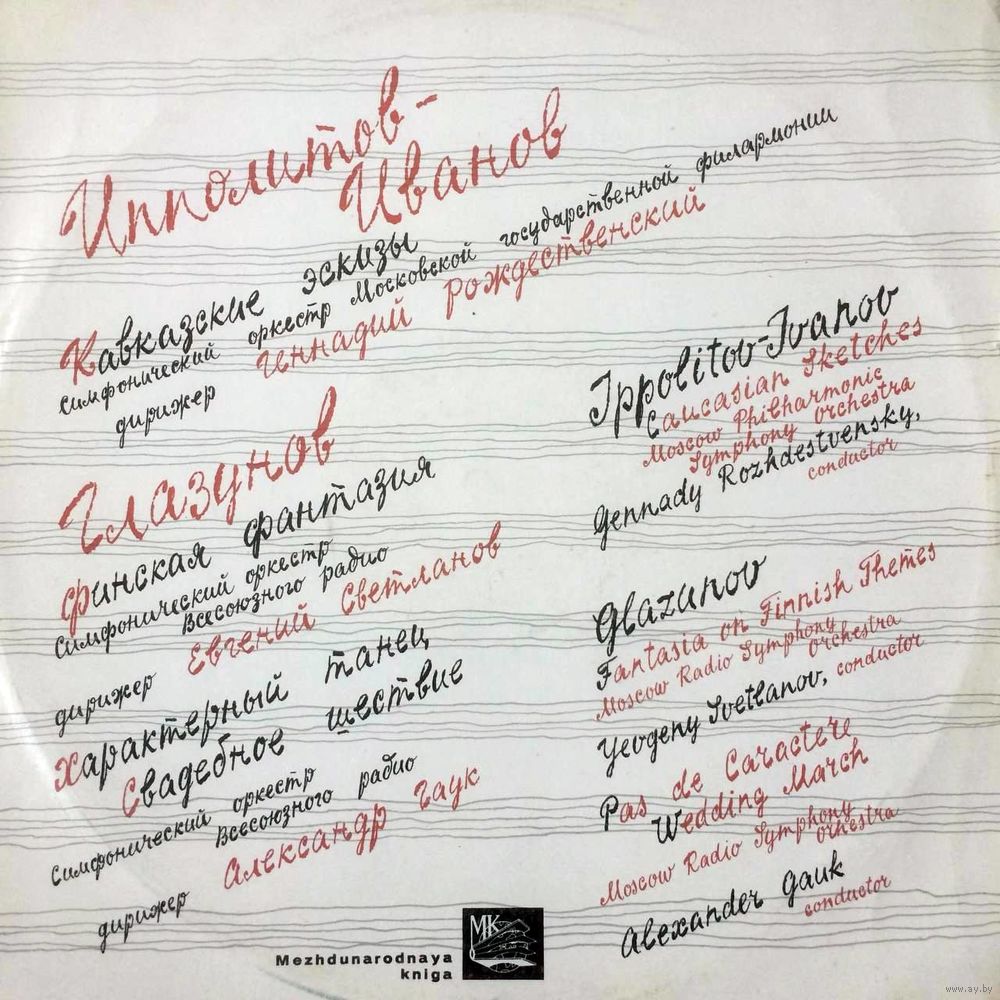 Ипполитов-
Иванов
Кавказские эскизы
Симфонический оркестр Московской государственной филармонии
дирижер Геннадий Рождественский
Глазунов
Финская фантазия
Симфонический оркестр
Всесоюзного радио
дирижер Евгений Светланов
Характерный танец
Свадебное шествие
Симфонический оркестр
Всесоюзного радио
дирижер Александр Гаук
Ippolitov-Ivanov
Caucasian Sketches
Moscow Philharmonic
Symphony Orchestra
Gennady Rozhdestvensky,
conductor
Glazunov
Fantasia on Finnish Themes
Moscow Radio Symphony
Orchestra
Yevgeny Svetlanov, conductor
Pas de Caractere
Wedding March
Moscow Radio Symphony
Orchestra
Alexander Gauk
conductor
Mezhdunarodnaya
kniga
МК
www.ay.by